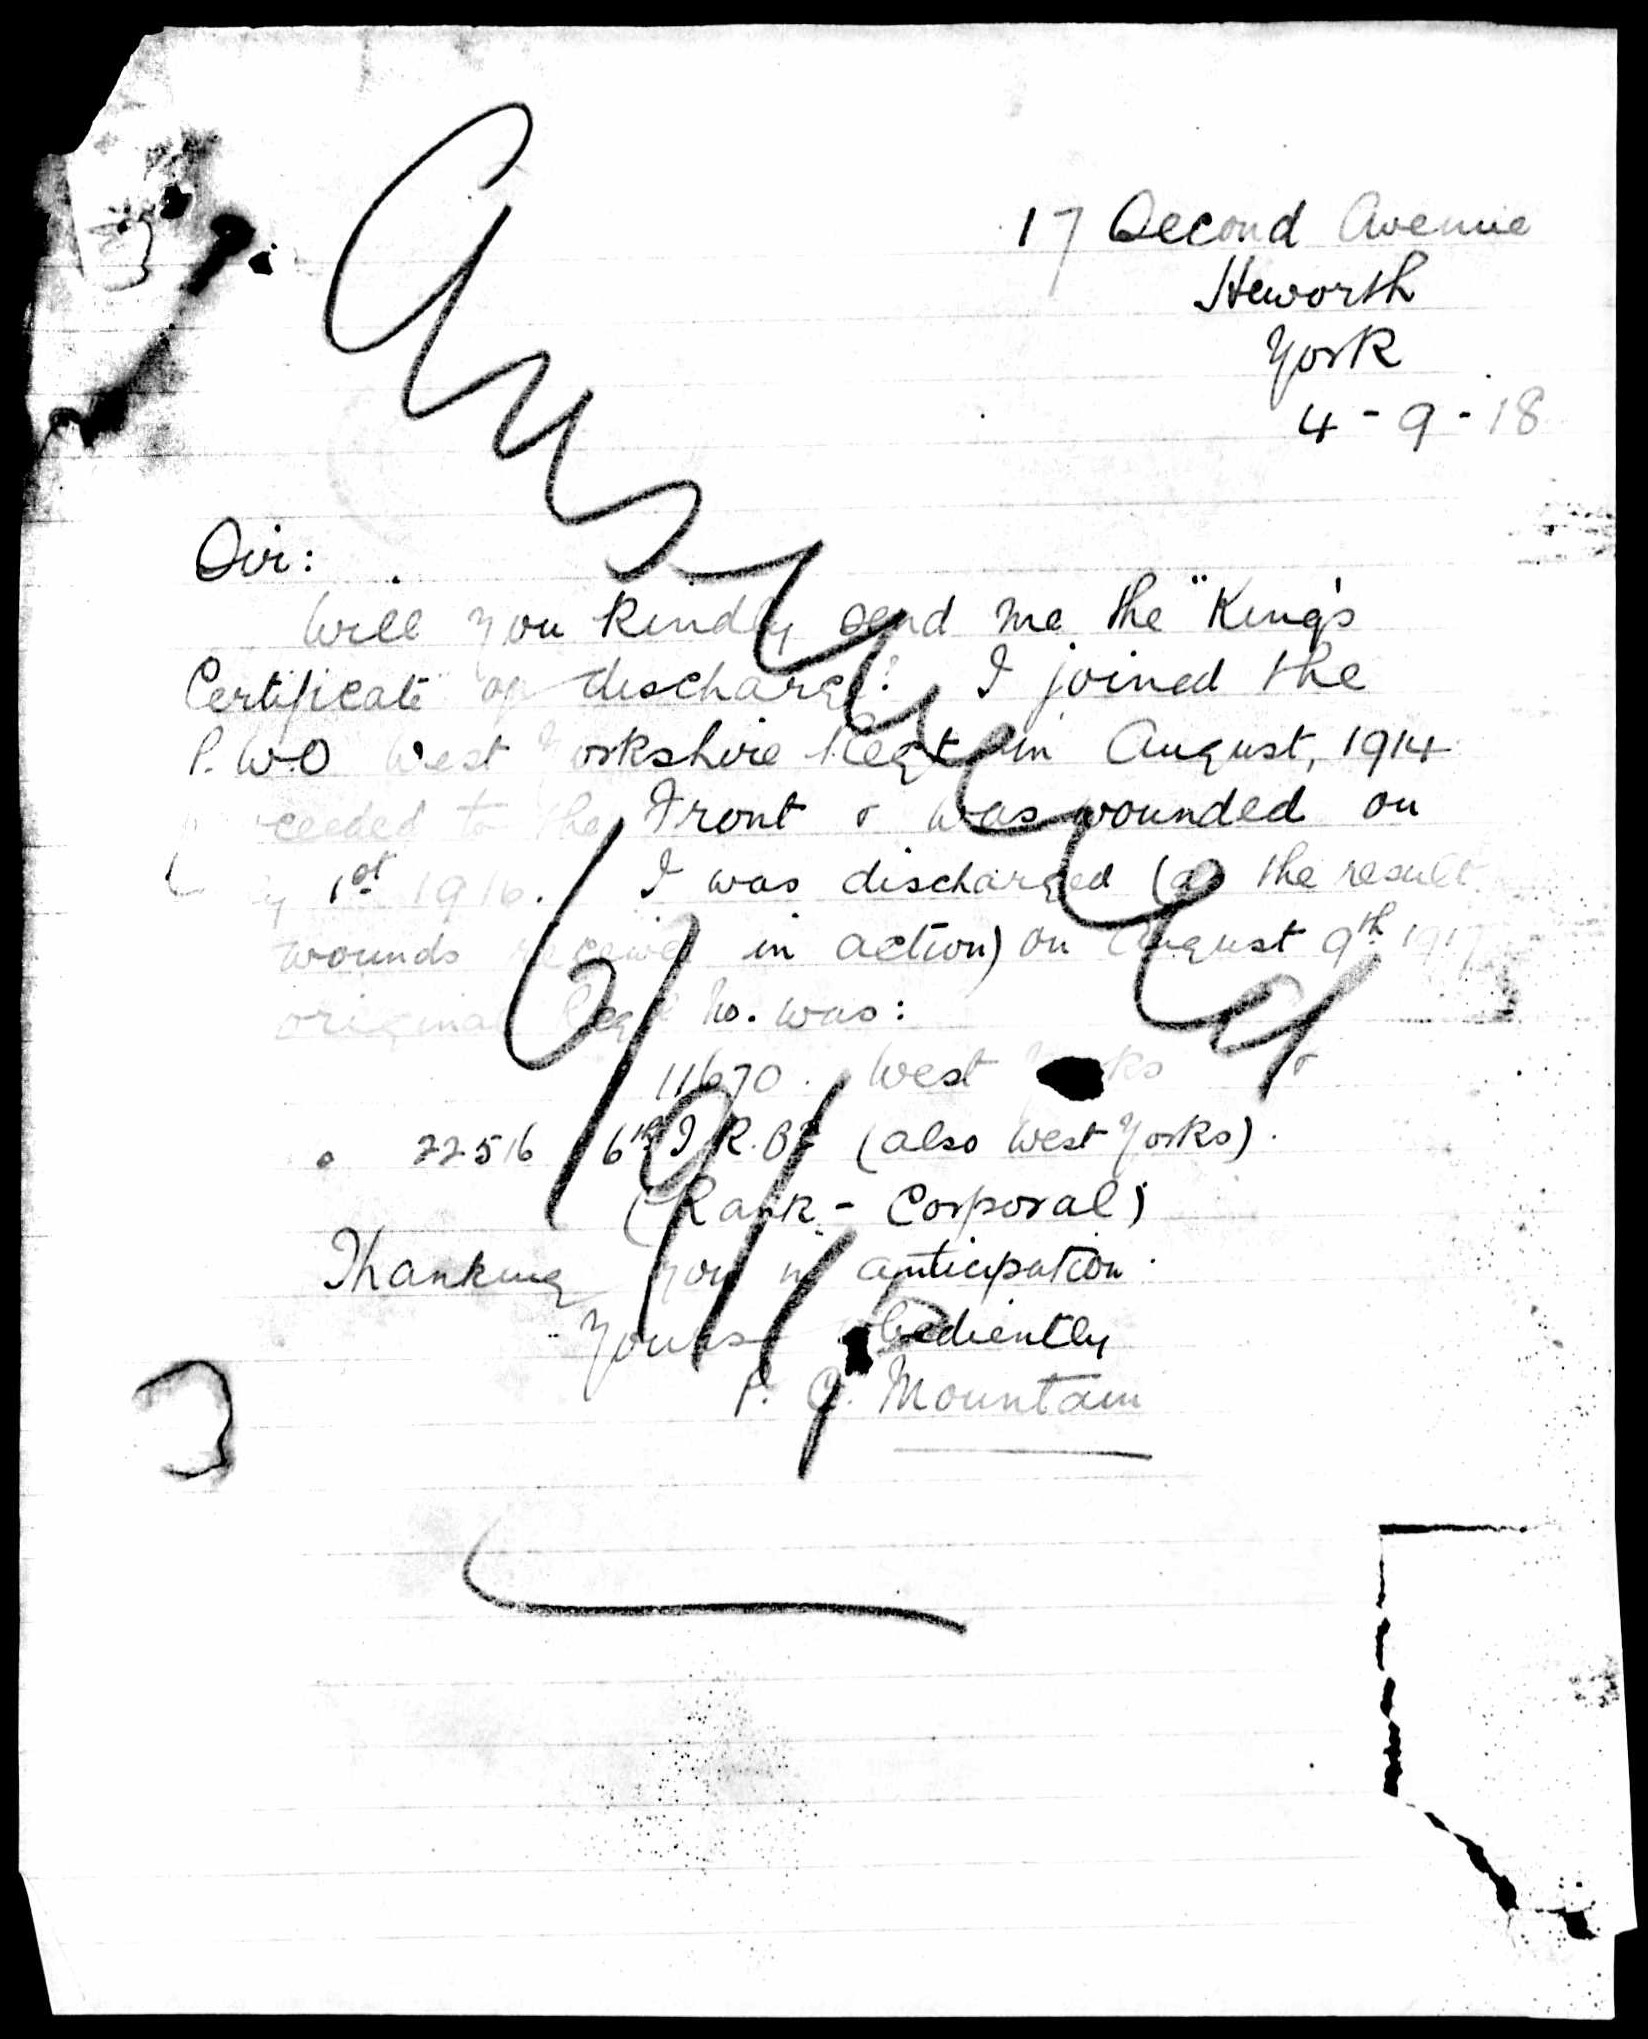 17 Second Avenue
Heworth
York
4-9-18
Sir:
Will you kindly send me the "King's
Certificate" of discharge? I joined the
P.W.O West Yorkshire Regt in August, 1914
to the Front & was wounded on
1st 1916. I was discharged (as the result
wounds received in action) on August 9th 1917
original Regtl No. was:
11670. West Yorks &
22516 6th T.R.Bn (also West Yorks).
(Rank - Corporal)
Thanking you in anticipation.
Yours obediently
P. Mountain
Answered
6/9/18